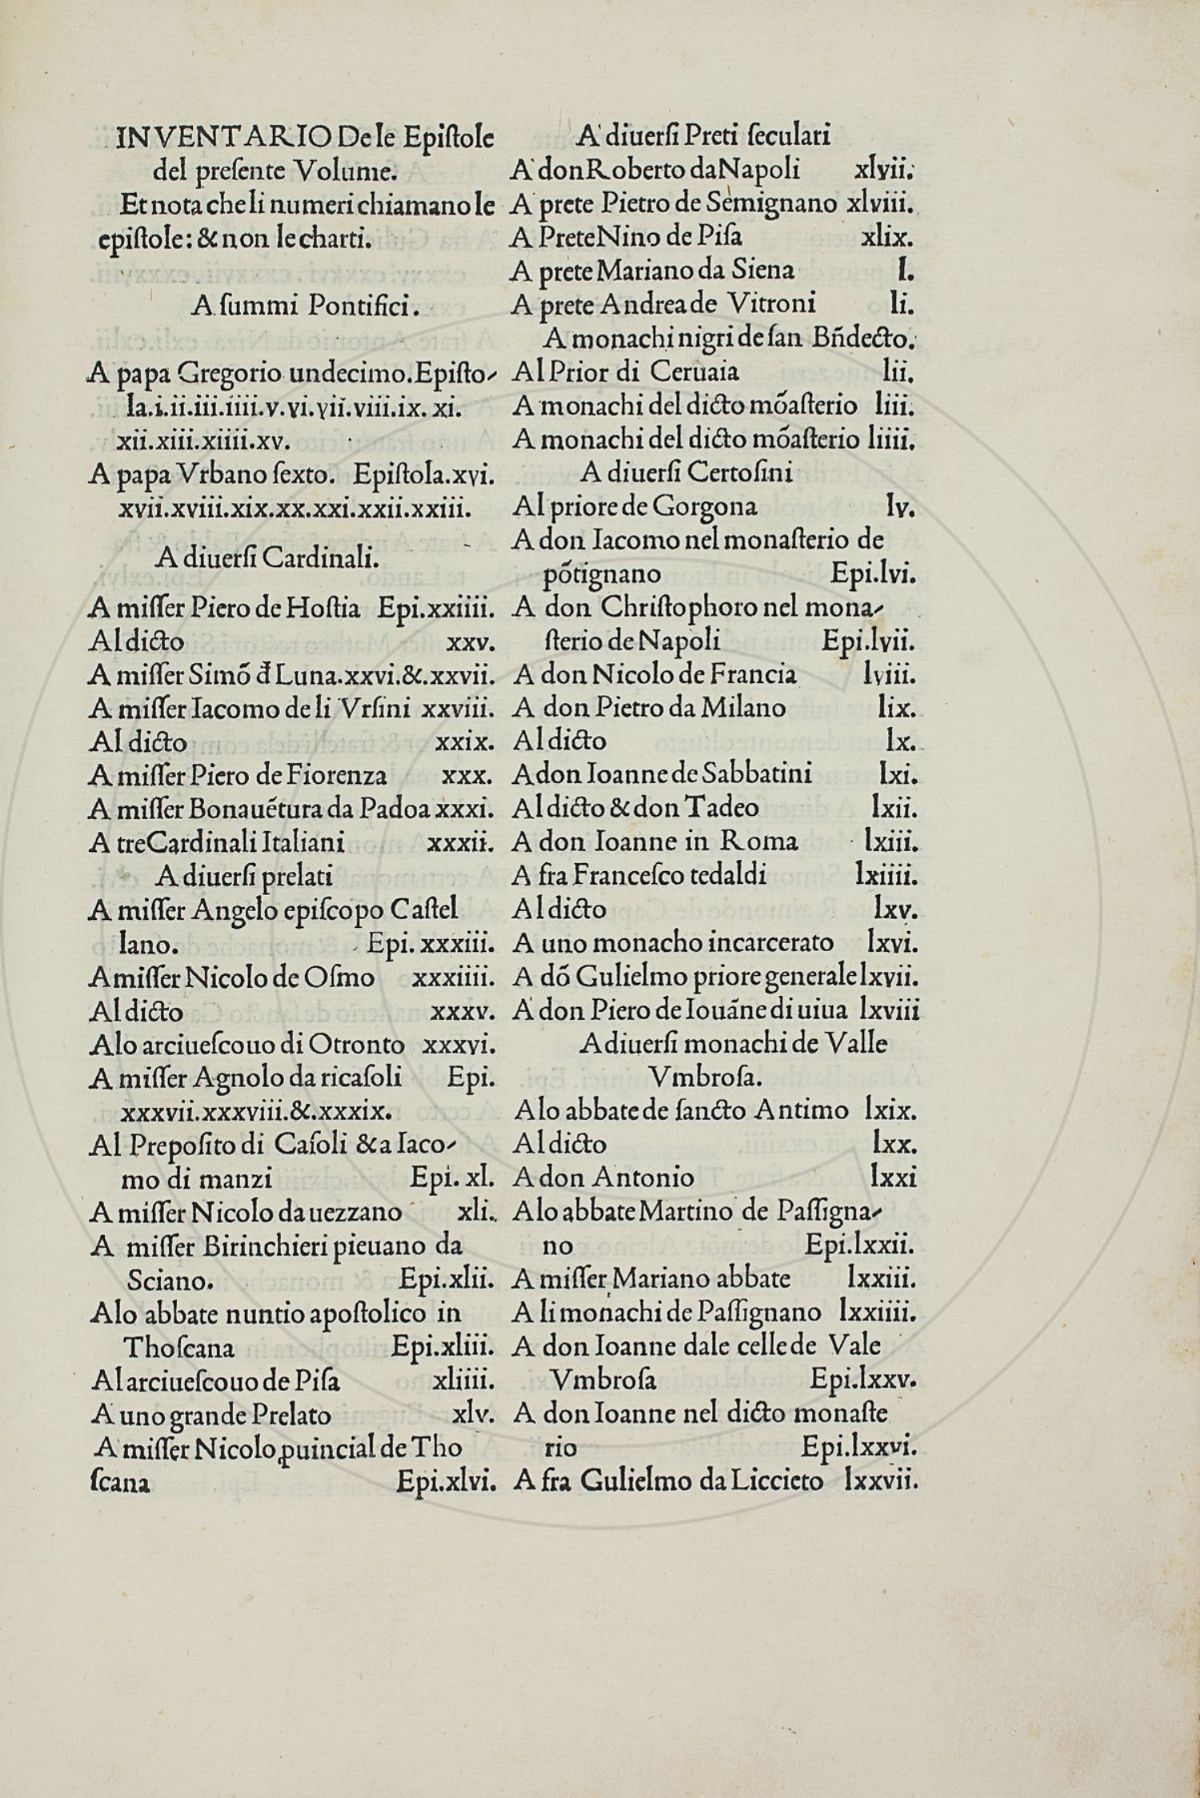 INVENTARIO De le Epiſtole
del preſente Volume.
Et nota che li numeri chiamano le
epiſtole: & non le charti.
A ſummi Pontifici.
A papa Gregorio undecimo. Epiſto-
la.i.ii.iii.iiii.v.vi.vii.viii.ix. xi.
xii.xiii.xiiii.xv.
A papa Vrbano ſexto. Epiſtola.xvi.
xvii.xviii.xix.xx.xxi.xxii.xxiii.
A diuerſi Cardinali.
A miſſer Piero de Hoſtia Epi.xxiiii.
Al dicto xxv.
A miſſer Simō đ Luna.xxvi.&.xxvii.
A miſſer Iacomo de li Vrſini xxviii.
Al dicto xxix.
A miſſer Piero de Fiorenza xxx.
A miſſer Bonauētura da Padoa xxxi.
A tre Cardinali Italiani xxxii.
A diuerſi prelati
A miſſer Angelo epiſcopo Caſtel
lano. Epi. xxxiii.
A miſſer Nicolo de Oſmo xxxiiii.
Al dicto xxxv.
Alo arciueſcouo di Otronto xxxvi.
A miſſer Agnolo da ricaſoli Epi.
xxxvii.xxxviii.&.xxxix.
Al Prepoſito di Caſoli & a Iaco-
mo di manzi Epi. xl.
A miſſer Nicolo da uezzano xli.
A miſſer Birinchieri pieuano da
Sciano. Epi.xlii.
Alo abbate nuntio apoſtolico in
Thoſcana Epi.xliii.
Al arciueſcouo de Piſa xliiii.
A uno grande Prelato xlv.
A miſſer Nicolo ꝓuincial de Tho
ſcana Epi.xlvi.
A diuerſi Preti ſeculari
A don Roberto da Napoli xlvii.
A prete Pietro de Semignano xlviii.
A Prete Nino de Piſa xlix.
A prete Mariano da Siena l.
A prete Andrea de Vitroni li.
A monachi nigri de ſan Bñdecto.
Al Prior di Ceruaia lii.
A monachi del dicto mōaſterio liii.
A monachi del dicto mōaſterio liiii.
A diuerſi Certoſini
Al priore de Gorgona lv.
A don Iacomo nel monaſterio de
pōtignano Epi.lvi.
A don Chriſtophoro nel mona-
ſterio de Napoli Epi.lvii.
A don Nicolo de Francia lviii.
A don Pietro da Milano lix.
Al dicto lx.
A don Ioanne de Sabbatini lxi.
Al dicto & don Tadeo lxii.
A don Ioanne in Roma lxiii.
A fra Franceſco tedaldi lxiiii.
Al dicto lxv.
A uno monacho incarcerato lxvi.
A dō Gulielmo priore generale lxvii.
A don Piero de Iouāne di uiua lxviii
A diuerſi monachi de Valle
Vmbroſa.
Alo abbate de ſancto Antimo lxix.
Al dicto lxx.
A don Antonio lxxi
Alo abbate Martino de Paſſigna-
no Epi.lxxii.
A miſſer Mariano abbate lxxiii.
A li monachi de Paſſignano lxxiiii.
A don Ioanne dale celle de Vale
Vmbroſa Epi.lxxv.
A don Ioanne nel dicto monaſte
rio Epi.lxxvi.
A fra Gulielmo da Liccieto lxxvii.